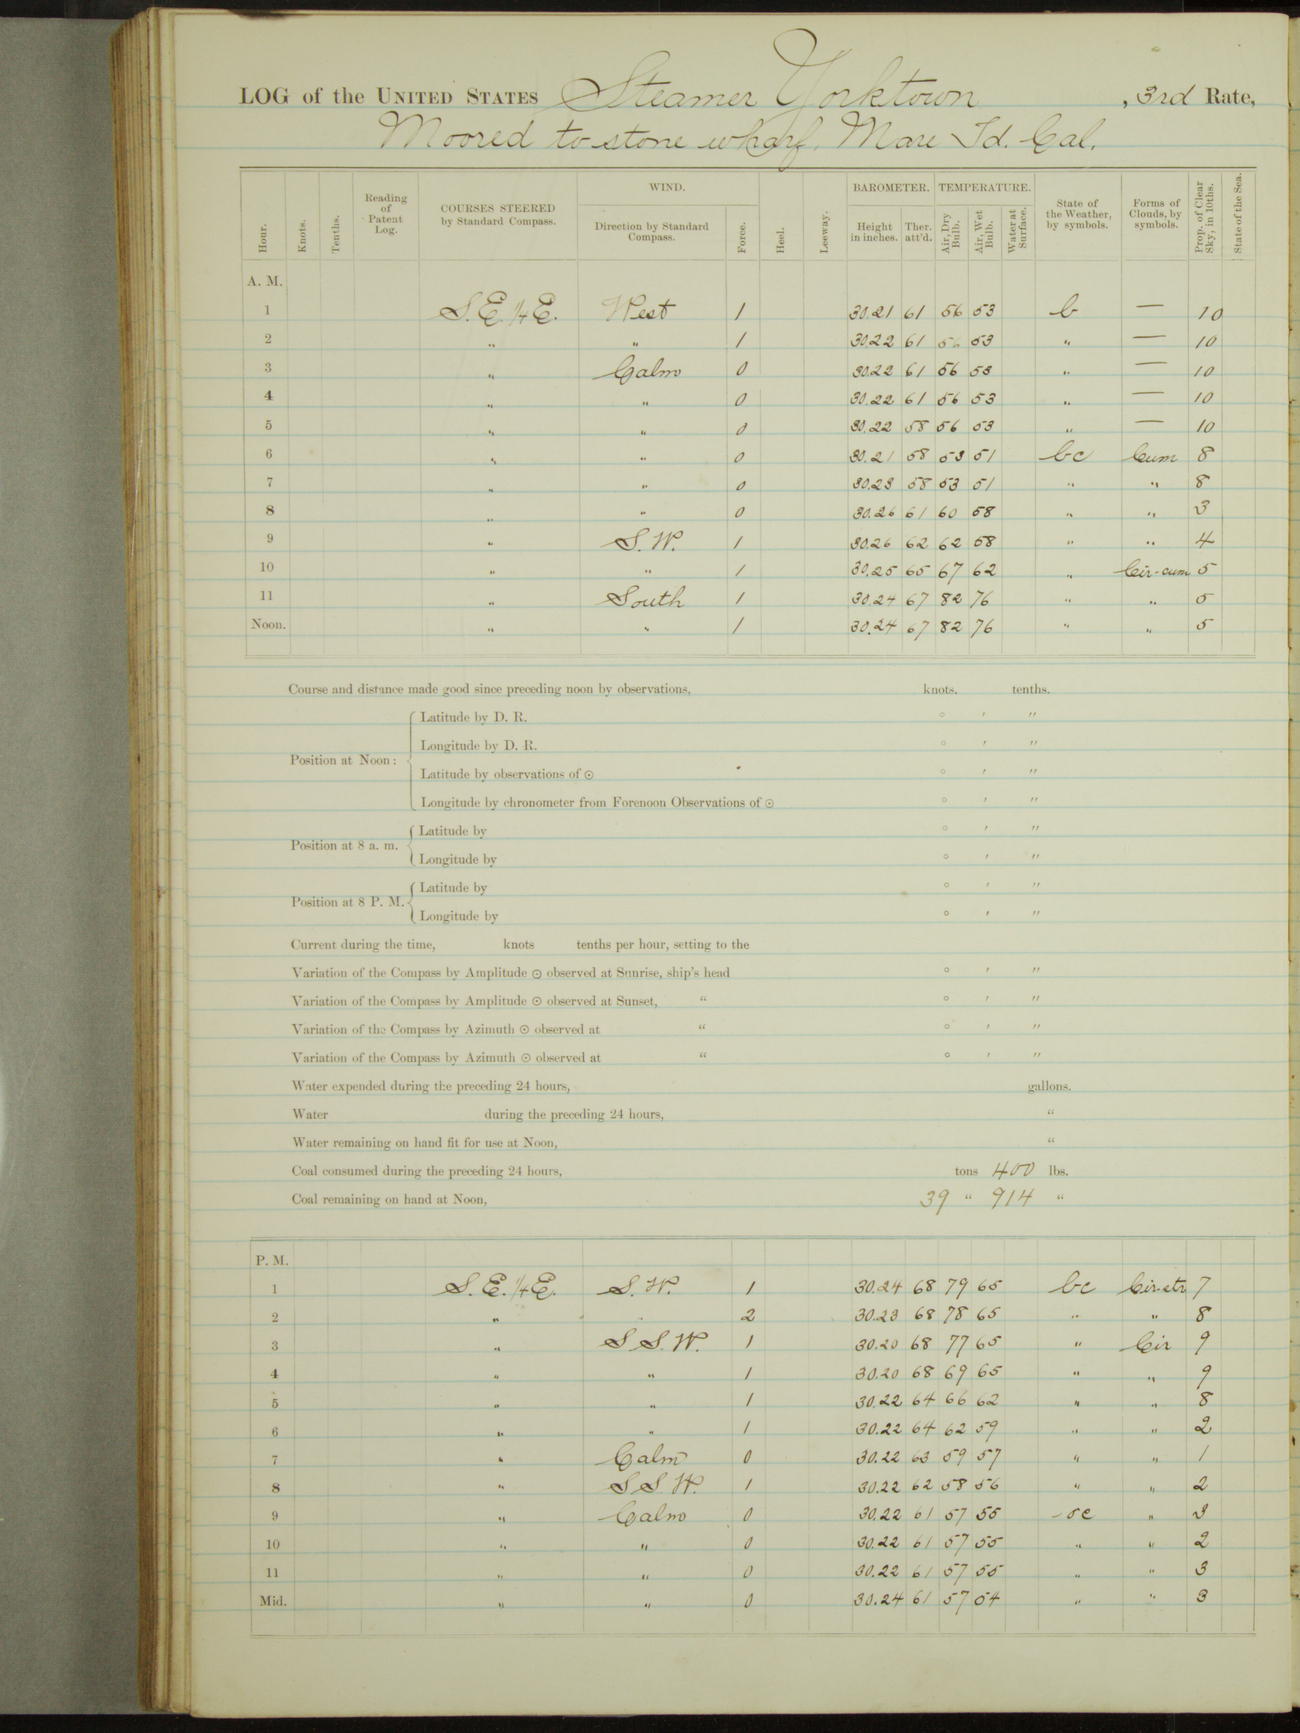 LOG of the UNITED STATES Steamer Yorktown , 3rd Rate,
Moored to stone wharf. Mare Id. Cal.
Hour. Knots. Tenths. Reading of Patent Log. COURSES STEERED by Standard Compass. WIND. Direction by Standard Compass. Force. Heel. Leeway. BAROMETER. Height in inches. Ther. att'd. TEMPERATURE. Air, Dry Bulb. Air, Wet Bulb. Water at Surface. State of the Weather, by symbols. Forms of Clouds, by symbols. Prop. of Clear Sky, in 10ths. State of the Sea.
A. M.
1 S.E. 1/4 E. West 1 30.21 61 56 53 b — 10
2 " " 1 30.22 61 56 53 " — 10
3 " Calm 0 30.22 61 56 53 " — 10
4 " " 0 30.22 61 56 53 " — 10
5 " " 0 30.22 58 56 53 " — 10
6 " " 0 30.21 58 53 51 bc Cum 8
7 " " 0 30.23 58 53 51 " " 8
8 " " 0 30.26 61 60 58 " " 3
9 " S.W. 1 30.26 62 62 58 " " 4
10 " " 1 30.25 65 67 62 " Cir-cum 5
11 " South 1 30.24 67 82 76 " " 5
Noon. " " 1 30.24 67 82 76 " " 5
Course and distance made good since preceding noon by observations, knots. tenths.
Latitude by D. R. ° ′ ″
Longitude by D. R. ° ′ ″
Position at Noon:
Latitude by observations of ⊙ ° ′ ″
Longitude by chronometer from Forenoon Observations of ⊙ ° ′ ″
Latitude by ° ′ ″
Position at 8 a. m.
Longitude by ° ′ ″
Latitude by ° ′ ″
Position at 8 P. M.
Longitude by ° ′ ″
Current during the time, knots tenths per hour, setting to the
Variation of the Compass by Amplitude ⊙ observed at Sunrise, ship's head ° ′ ″
Variation of the Compass by Amplitude ⊙ observed at Sunset, " ° ′ ″
Variation of the Compass by Azimuth ⊙ observed at " ° ′ ″
Variation of the Compass by Azimuth ⊙ observed at " ° ′ ″
Water expended during the preceding 24 hours, gallons.
Water during the preceding 24 hours, "
Water remaining on hand fit for use at Noon, "
Coal consumed during the preceding 24 hours, tons 400 lbs.
Coal remaining on hand at Noon, 39 " 914 "
P. M.
1 S.E. 1/4 E. S.W. 1 30.24 68 79 65 bc Cir-str 7
2 " " 2 30.23 68 78 65 " " 8
3 " S.S.W. 1 30.20 68 77 65 " Cir 9
4 " " 1 30.20 68 69 65 " " 9
5 " " 1 30.22 64 66 62 " " 8
6 " " 1 30.22 64 62 59 " " 2
7 " Calm 0 30.22 63 59 57 " " 1
8 " S.S.W. 1 30.22 62 58 56 " " 2
9 " Calm 0 30.22 61 57 55 " 3
10 " " 0 30.22 61 57 55 " " 2
11 " " 0 30.22 61 57 55 " " 3
Mid. " " 0 30.24 61 57 54 " " 3